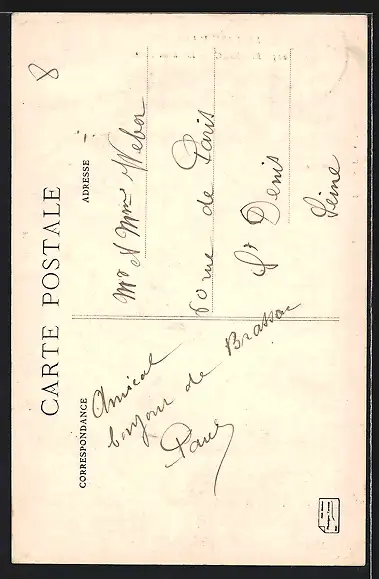 8
CARTE POSTALE
CORRESPONDANCE
Amical
bonjour de Brassac
Paul
ADRESSE
Mr & Mme Weber
rue de Paris
St Denis
Seine